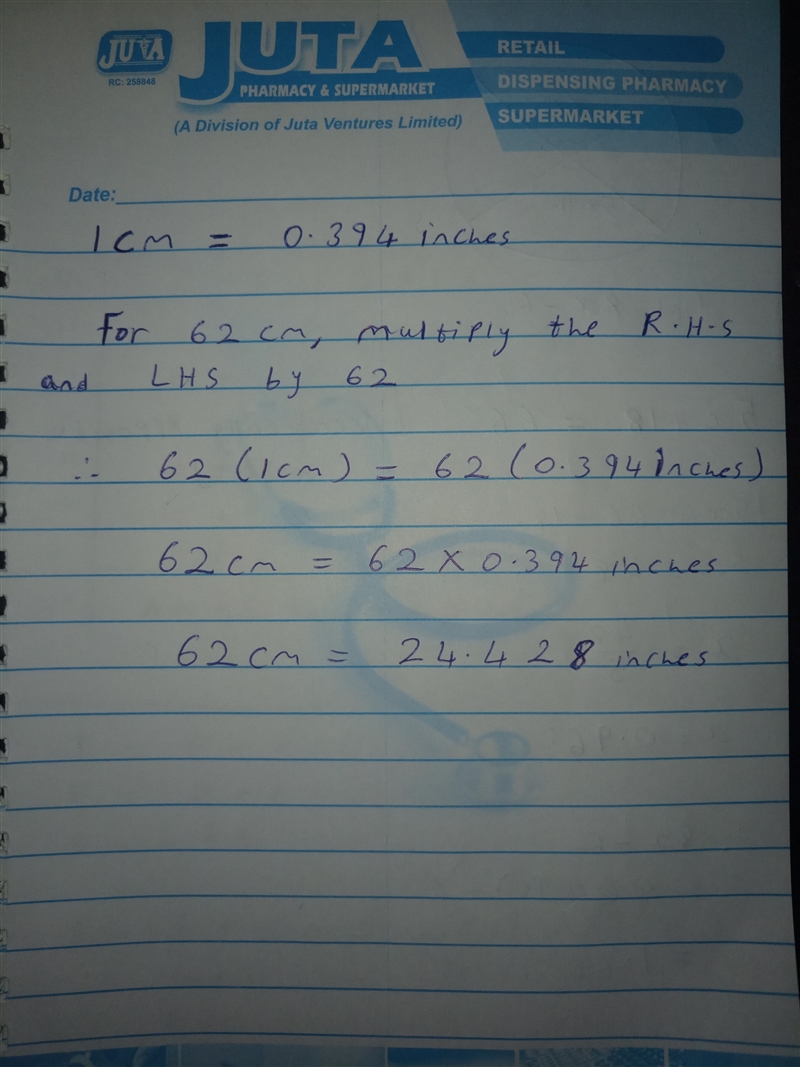 JUTA
RC: 258848
JUTA
PHARMACY & SUPERMARKET
(A Division of Juta Ventures Limited)
RETAIL
DISPENSING PHARMACY
SUPERMARKET
Date:
1cm = 0.394 inches
For 62 cm, multiply the R.H.S
and LHS by 62
∴ 62 (1cm) = 62 (0.394 inches)
62cm = 62 X 0.394 inches
62cm = 24.428 inches